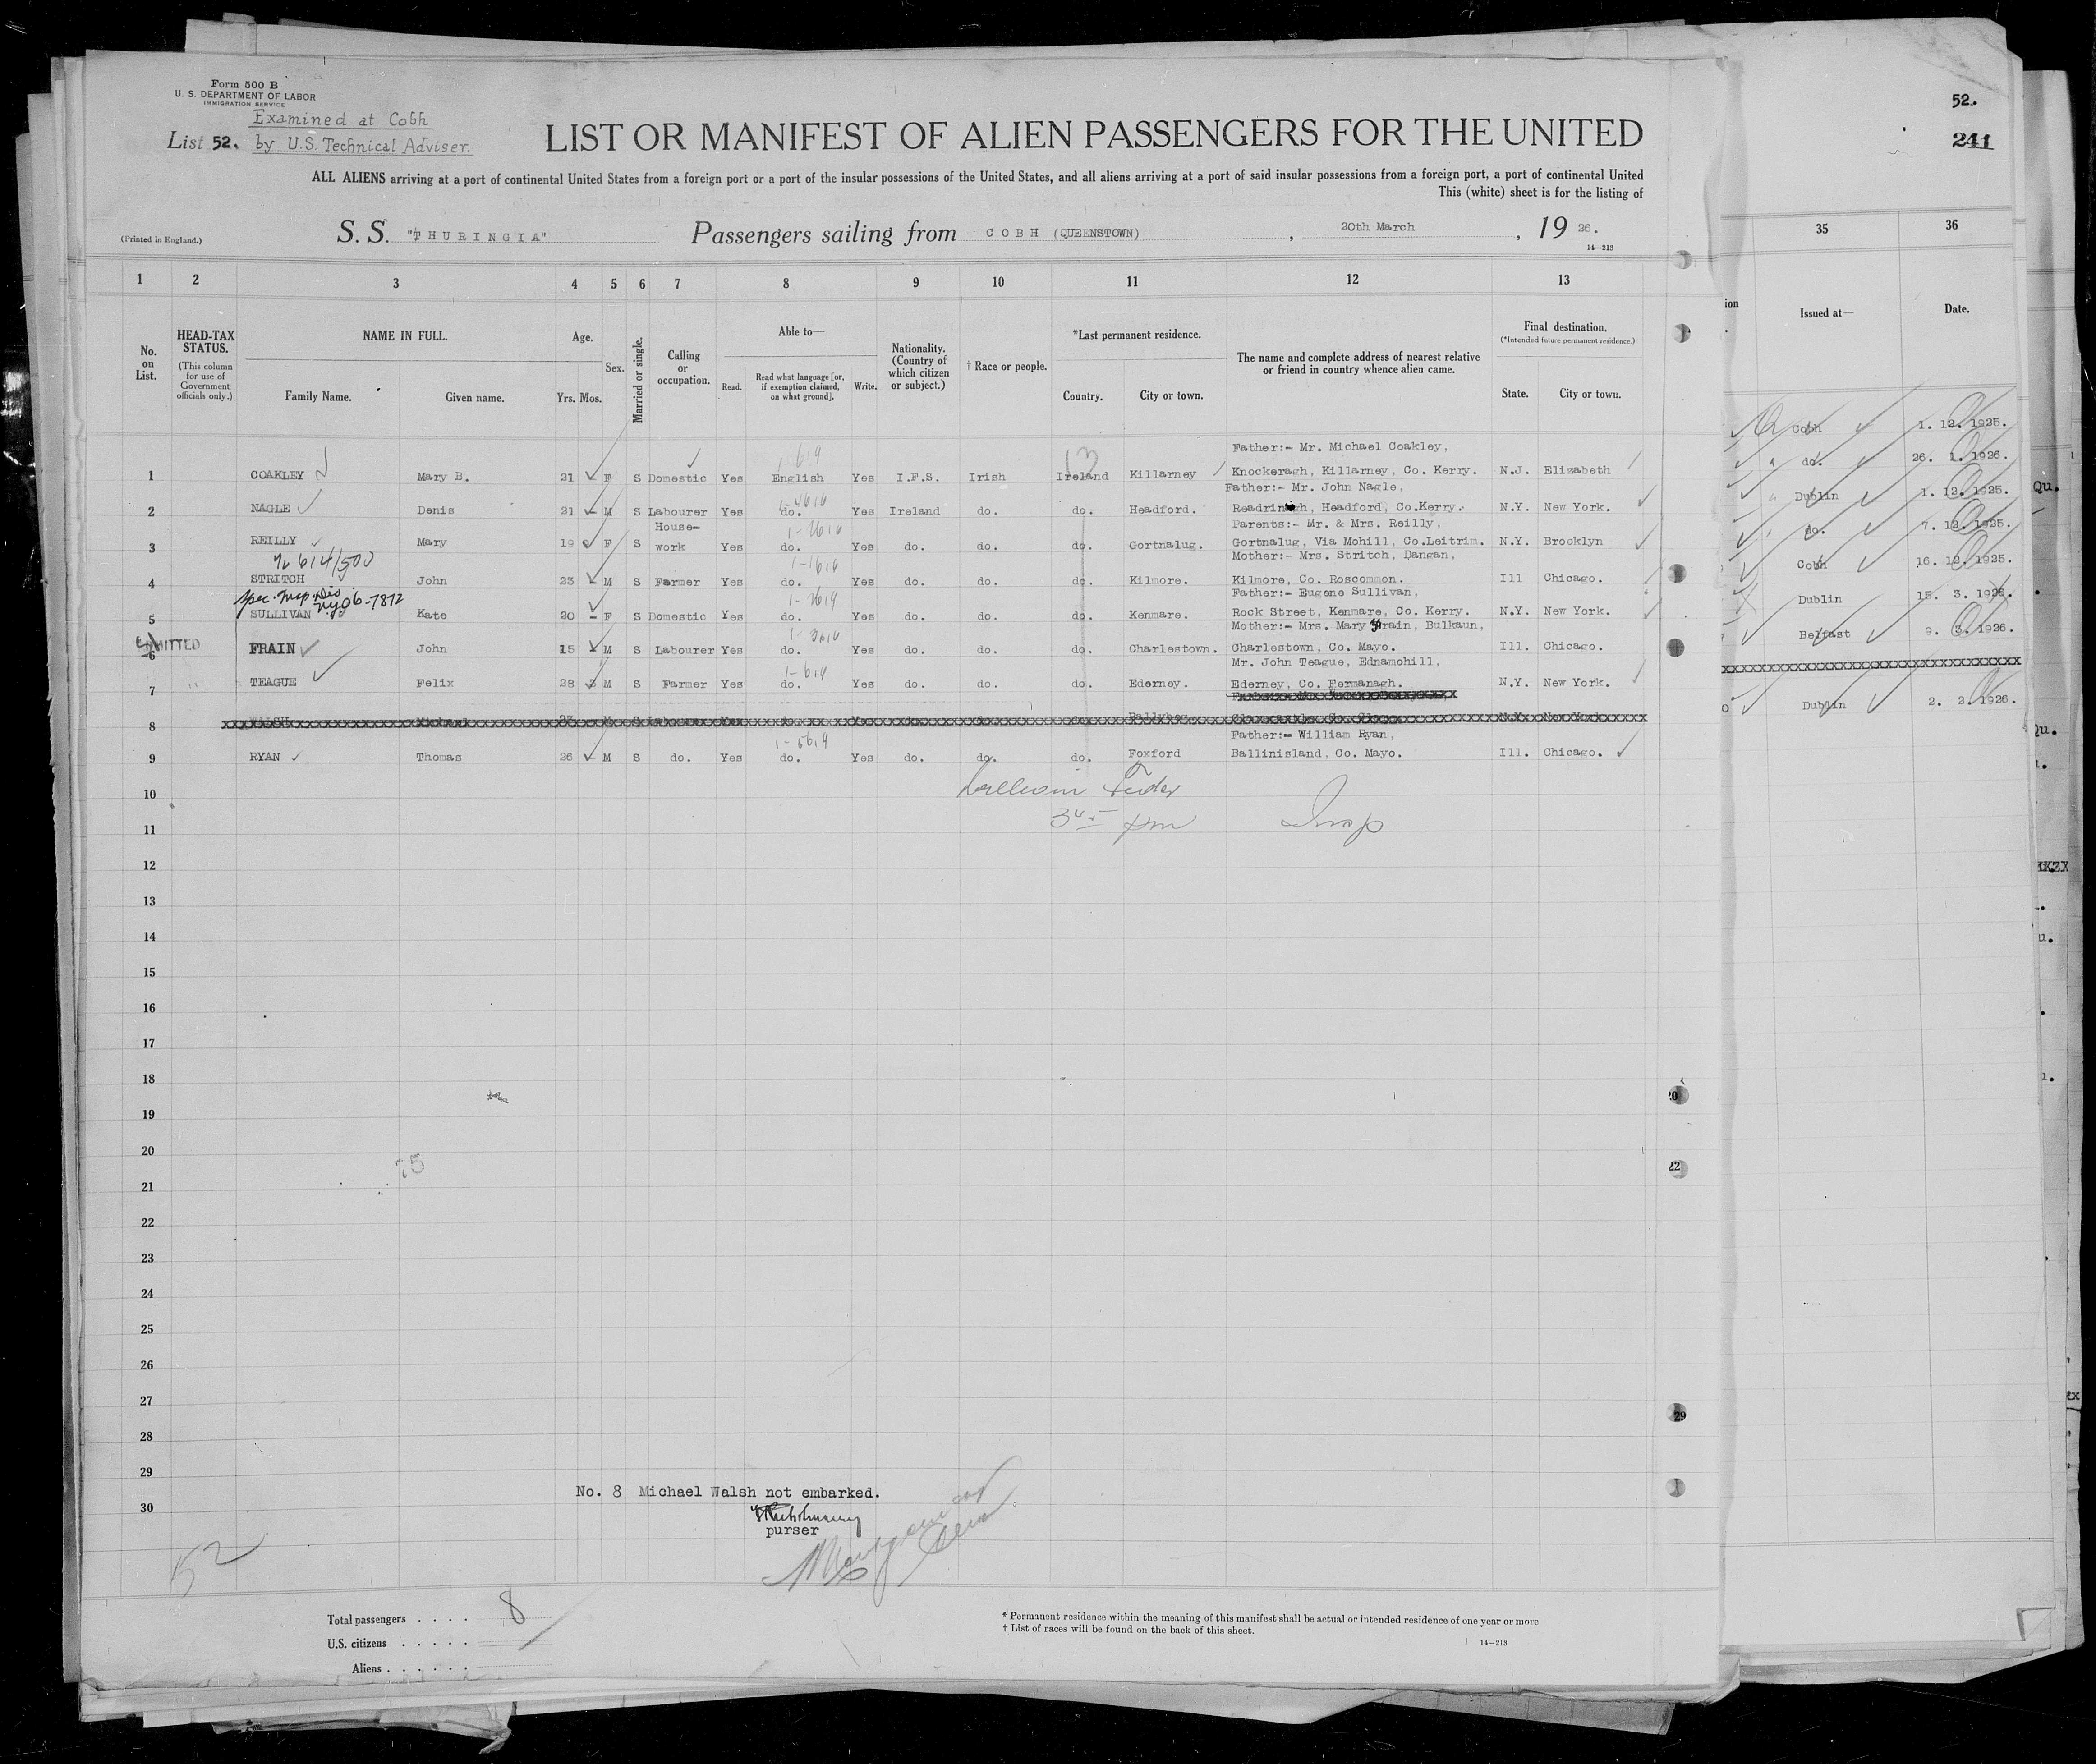 Form 500 B
U. S. DEPARTMENT OF LABOR
IMMIGRATION SERVICE
Examined at Cobh
List 52. by U.S. Technical Adviser.
LIST OR MANIFEST OF ALIEN PASSENGERS FOR THE UNITED
ALL ALIENS arriving at a port of continental United States from a foreign port or a port of the insular possessions of the United States, and all aliens arriving at a port of said insular possessions from a foreign port, a port of continental United
This (white) sheet is for the listing of
(Printed in England.)
S. S. "THURINGIA" Passengers sailing from COBH (QUEENSTOWN), 20th March, 1926.
14—213
52.
241
1 2 3 4 5 6 7 8 9 10 11 12 13 35 36
No. on List.
HEAD-TAX STATUS.
(This column for use of Government officials only.)
NAME IN FULL.
Family Name. Given name.
Age.
Yrs. Mos.
Sex.
Married or single.
Calling or occupation.
Able to—
Read. Read what language [or, if exemption claimed, on what ground]. Write.
Nationality. (Country of which citizen or subject.)
† Race or people.
*Last permanent residence.
Country. City or town.
The name and complete address of nearest relative or friend in country whence alien came.
Final destination.
(*Intended future permanent residence.)
State. City or town.
ion
Issued at—
Date.
Father:- Mr. Michael Coakley,
1 COAKLEY Mary B. 21 F S Domestic Yes English Yes I.F.S. Irish Ireland Killarney Knockeragh, Killarney, Co. Kerry. N.J. Elizabeth Cobh 1. 12. 1925.
Father:- Mr. John Nagle,
2 NAGLE Denis 21 M S Labourer Yes do. Yes Ireland do. do. Headford. Headford, Co.Kerry. N.Y. New York. do. 26. 1. 1926.
House- Parents:- Mr. & Mrs. Reilly,
3 REILLY Mary 19 F S work Yes do. Yes do. do. do. Gortnalug. Gortnalug, Via Mohill, Co.Leitrim. N.Y. Brooklyn Dublin 1. 12. 1925.
614/500
Mother:- Mrs. Stritch, Dangan,
4 STRITCH John 23 M S Farmer Yes do. Yes do. do. do. Kilmore. Kilmore, Co. Roscommon. Ill Chicago. do. 7. 12. 1925.
Father:- Eugene Sullivan,
5 SULLIVAN Kate 20 - F S Domestic Yes do. Yes do. do. do. Kenmare. Rock Street, Kenmare, Co. Kerry. N.Y. New York. Cobh 16. 12. 1925.
Mother:- Mrs. Mary Frain, Bulkaun,
ADMITTED
6 FRAIN John 15 M S Labourer Yes do. Yes do. do. do. Charlestown. Charlestown, Co. Mayo. Ill. Chicago. Dublin 15. 3. 1926.
Mr. John Teague, Ednamohill,
7 TEAGUE Felix 28 M S Farmer Yes do. Yes do. do. do. Ederney. Ederney, Co. Fermanagh. N.Y. New York. Belfast 9. 3. 1926.
8 WALSH Michael 23 M S Labourer Yes do. Yes do. do. do. N.Y. New York
Father:- William Ryan,
9 RYAN Thomas 26 M S do. Yes do. Yes do. do. do. Foxford Ballinisland, Co. Mayo. Ill. Chicago. Dublin 2. 2. 1926.
10
11
Insp
12
13
14
15
16
17
18
19
20
21
22
23
24
25
26
27
28
29
No. 8 Michael Walsh not embarked.
30
purser
52
Total passengers . . . . 8
U.S. citizens . . . . .
Aliens . . . . . .
* Permanent residence within the meaning of this manifest shall be actual or intended residence of one year or more
† List of races will be found on the back of this sheet.
14—213